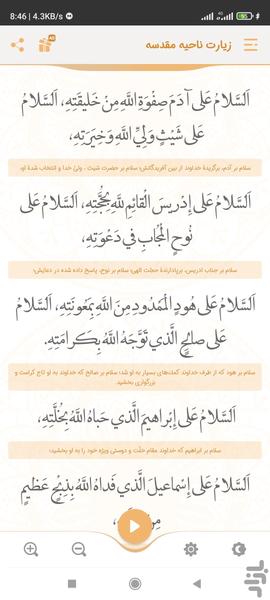 8:46 | 4.3KB/s
زیارت ناحیه مقدسه
اَلسَّلامُ عَلى آدَمَ صِفْوَةِ اللهِ مِنْ خَليقَتِهِ، اَلسَّلامُ
عَلى شَيْثٍ وَلِيِّ اللهِ وَخِيَرَتِهِ،
سلام بر آدم، برگزیدهٔ خداوند از بین آفریدگانش؛ سلام بر حضرت شیث ، ولیّ خدا و انتخاب شدهٔ او،
اَلسَّلامُ عَلى إِدْريسَ الْقائِمِ لِلّهِ بِحُجَّتِهِ، اَلسَّلامُ عَلى
نُوحٍ الْمُجابِ في دَعْوَتِهِ،
سلام بر جناب ادریس، برپادارندهٔ حجّت الهی؛ سلام بر نوح، پاسخ داده شده در دعایش؛
اَلسَّلامُ عَلى هُودٍ الْمَمْدُودِ مِنَ اللهِ بِمَعُونَتِهِ، اَلسَّلامُ
عَلى صالِحٍ الَّذي تَوَّجَهُ اللهُ بِكَرامَتِهِ.
سلام بر هود که از طرف خداوند کمک‌های بسیار به او شد؛ سلام بر صالح که خداوند به او تاج کرامت و
بزرگواری بخشید.
اَلسَّلامُ عَلى إِبْراهيمَ الَّذي حَباهُ اللهُ بِخُلَّتِهِ،
سلام بر ابراهیم که خداوند مقام خلّت و دوستی ویژه خود را به او بخشید؛
اَلسَّلامُ عَلى إِسْماعيلَ الَّذي فَداهُ اللهُ بِذِبْحٍ عَظيمٍ
بازار